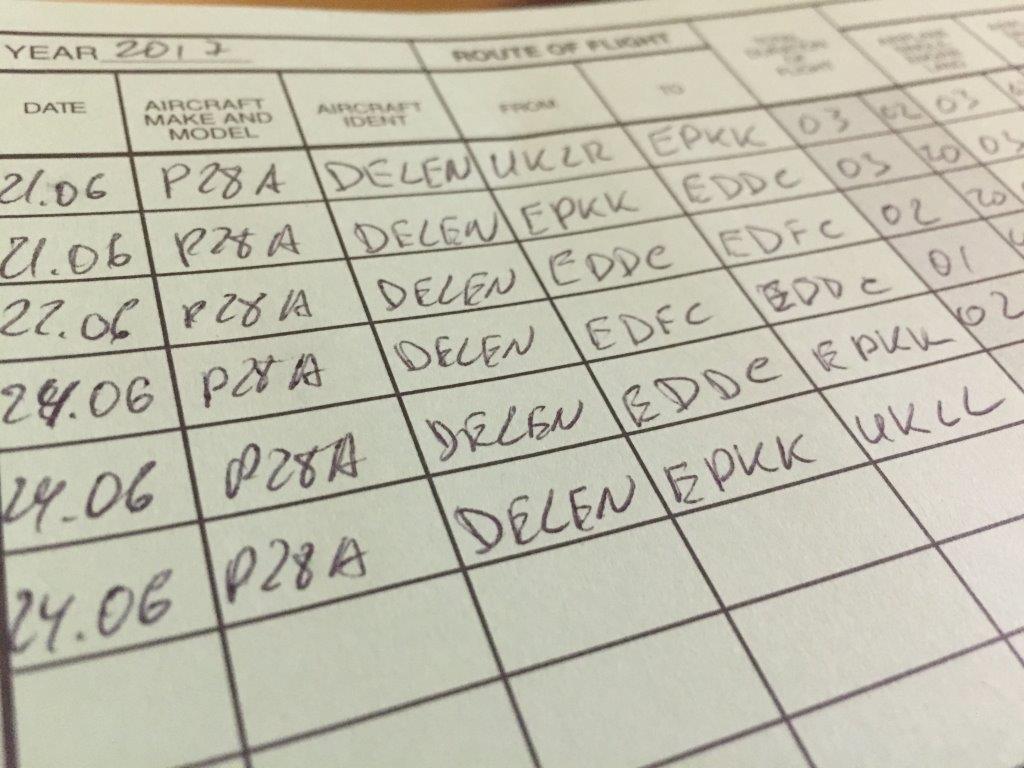 YEAR 2017 ROUTE OF FLIGHT
DATE AIRCRAFT MAKE AND MODEL AIRCRAFT IDENT FROM TO TOTAL DURATION OF FLIGHT
21.06 P28A DELEN UKLR EPKK 03 02 03
21.06 P28A DELEN EPKK EDDC 03 20 03
22.06 P28A DELEN EDDC EDFC 02 20
24.06 P28A DELEN EDFC EDDC 01
24.06 P28A DELEN EDDC EPKK 02
24.06 P28A DELEN EPKK UKLL